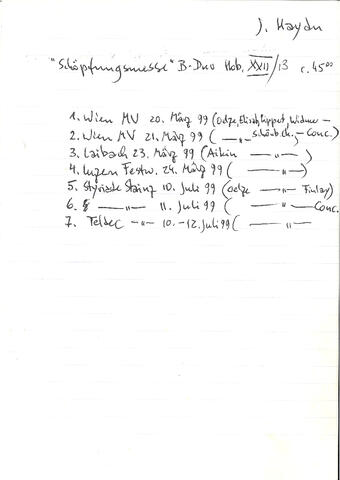 J. Haydn
"Schöpfungsmesse" B-Duv Hob. XXII/13 c. 45'00
1. Wien MV 20. März 99 (Oelze, Elisab, Lippert, Widmer –
2. Wien MV 21. März 99 ( —„— schönb.ch. – Conc.)
3. Laibach 23. März 99 (Aikin —„— )
4. Luzern Festw. 24. März 99 ( —„— )
5. Styriade Stainz 10. Juli 99 (Oelze —„— Finlay)
6. —„— 11. Juli 99 ( —„— Conc.
7. Teldec —„— 10.-12. Juli 99 ( —„—